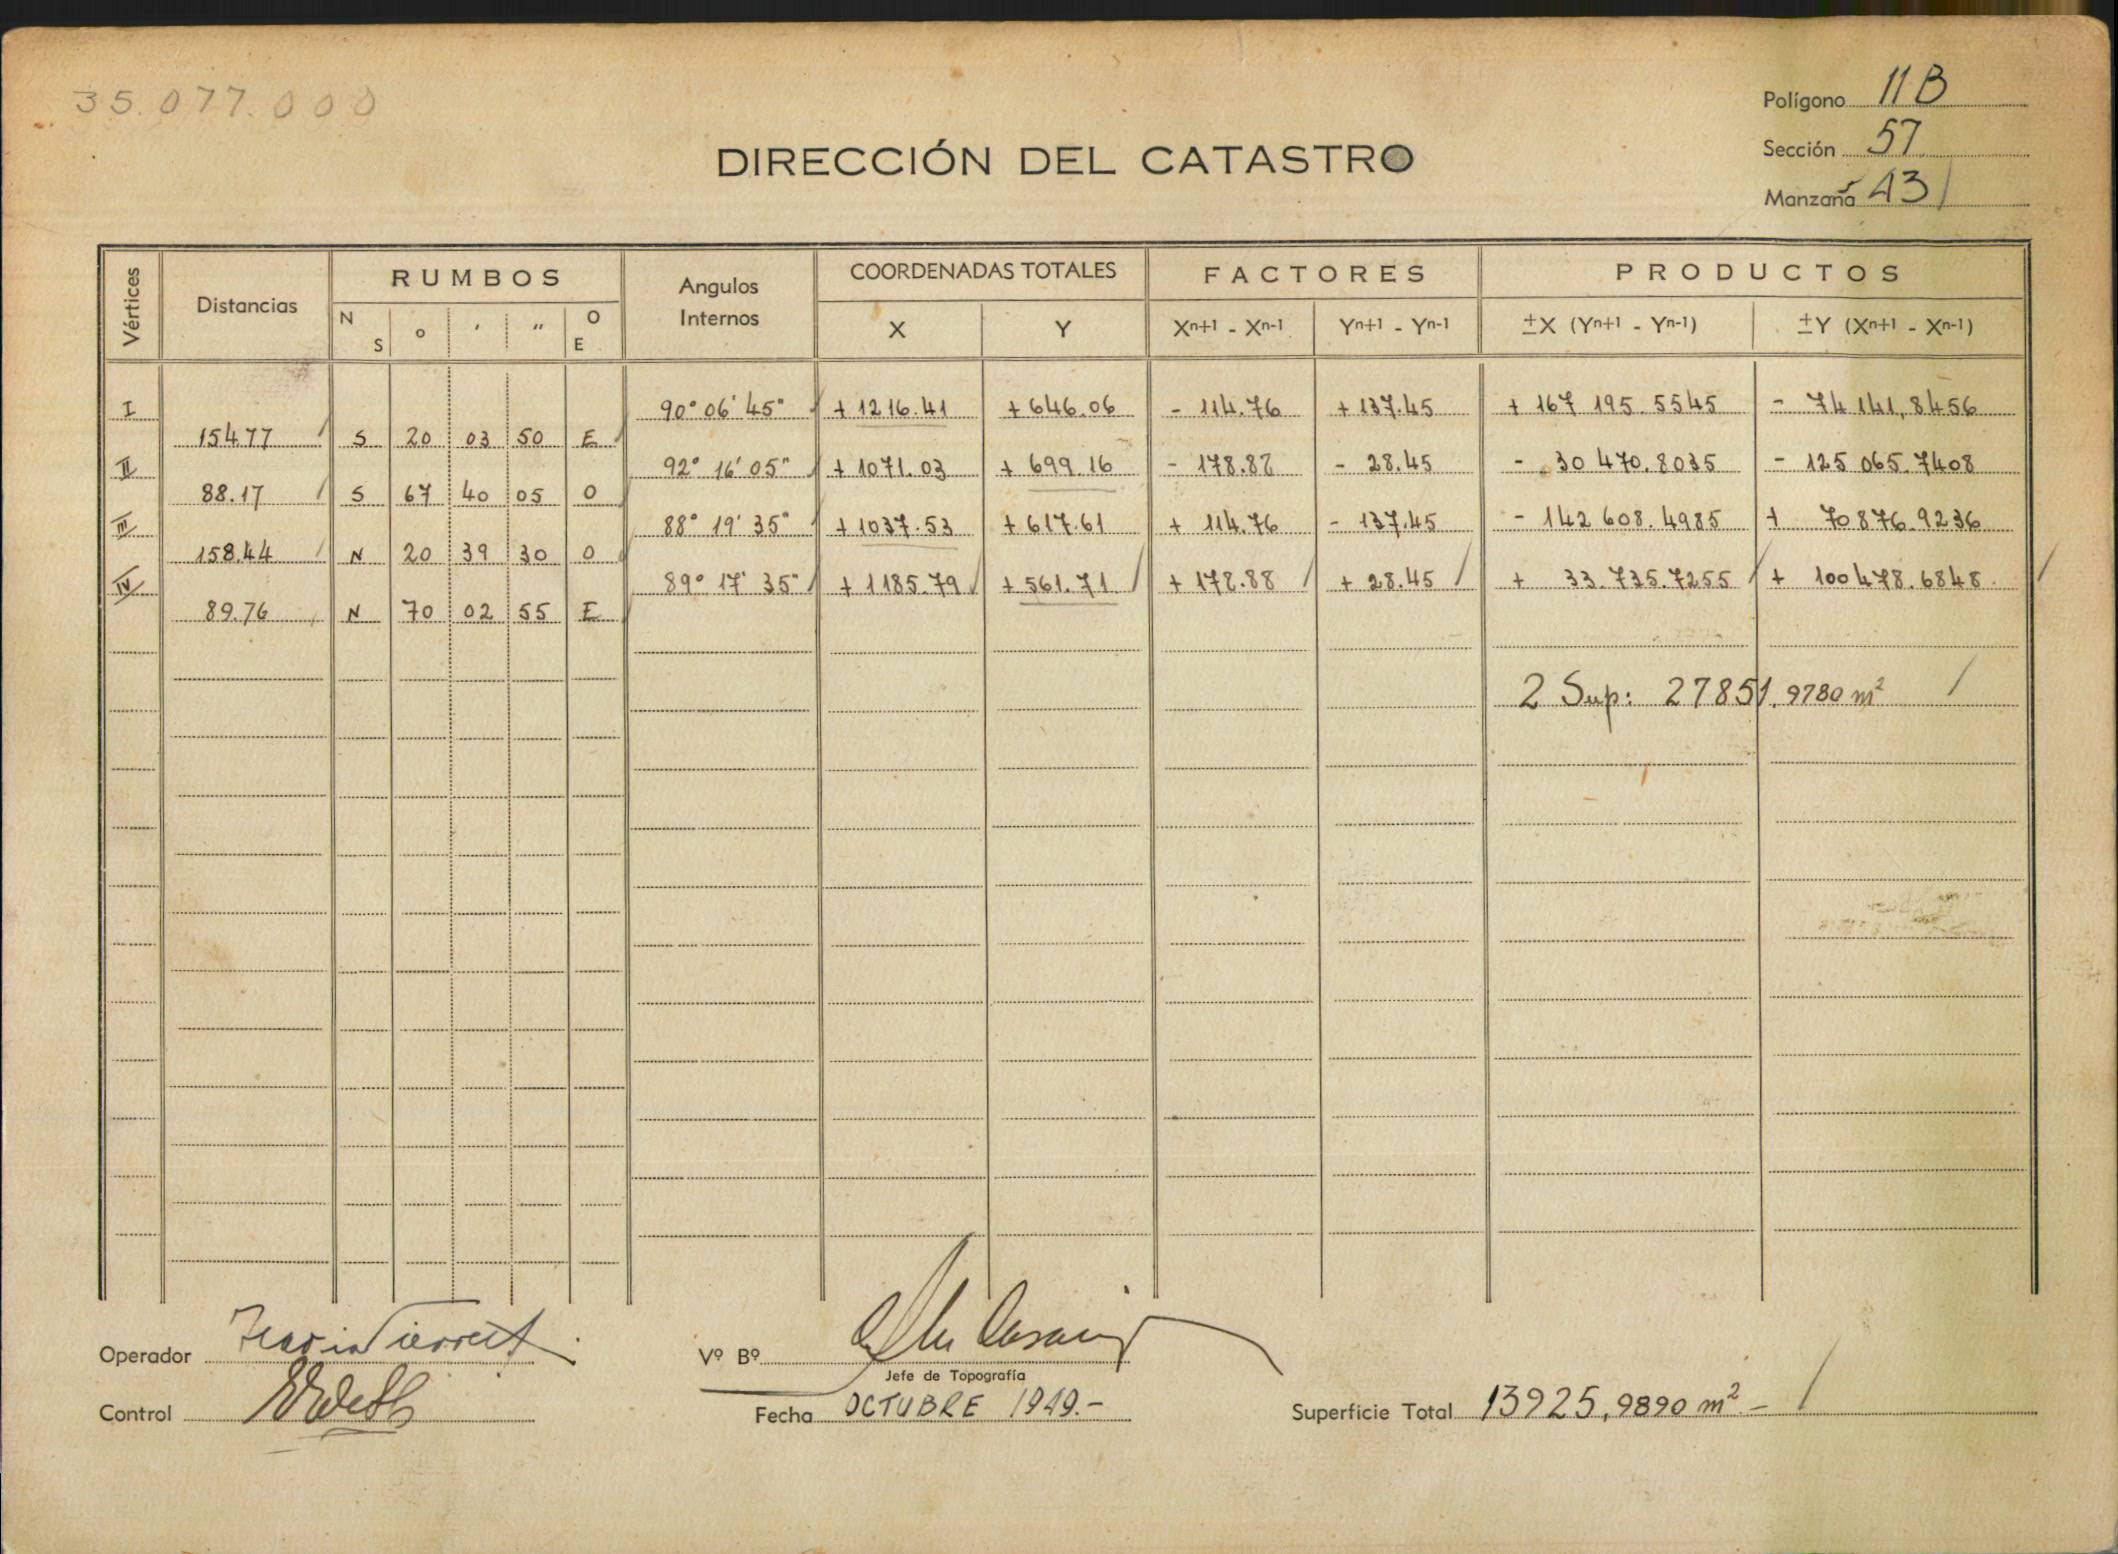 35.077.000
Polígono 11 B
Sección 57
Manzana 43
DIRECCIÓN DEL CATASTRO
Vértices Distancias RUMBOS Angulos Internos COORDENADAS TOTALES FACTORES PRODUCTOS
N S o ' " O E X Y Xn+1 - Xn-1 Yn+1 - Yn-1 ±X (Yn+1 - Yn-1) ±Y (Xn+1 - Xn-1)
I 90° 06' 45" + 1216.41 + 646.06 - 114.76 + 137.45 + 167 195.5545 - 74 141,8456
154.77 S 20 03 50 E
II 92° 16' 05" + 1071.03 + 699.16 - 178.88 - 28.45 - 30 470.8035 - 125 065.7408
88.17 S 67 40 05 O
III 88° 19' 35" + 1037.53 + 617.61 + 114.76 - 137.45 - 142 608.4985 + 70 876.9236
158.44 N 20 39 30 O
IV 89° 17' 35" + 1185.79 + 561.71 + 178.88 + 28.45 + 33.735.7255 + 100 478.6848
89.76 N 70 02 55 E
2 Sup: 27851.9780 m²
Operador
Vº Bº
Jefe de Topografía
Control
Fecha OCTUBRE 1949.-
Superficie Total 13925,9890 m².-